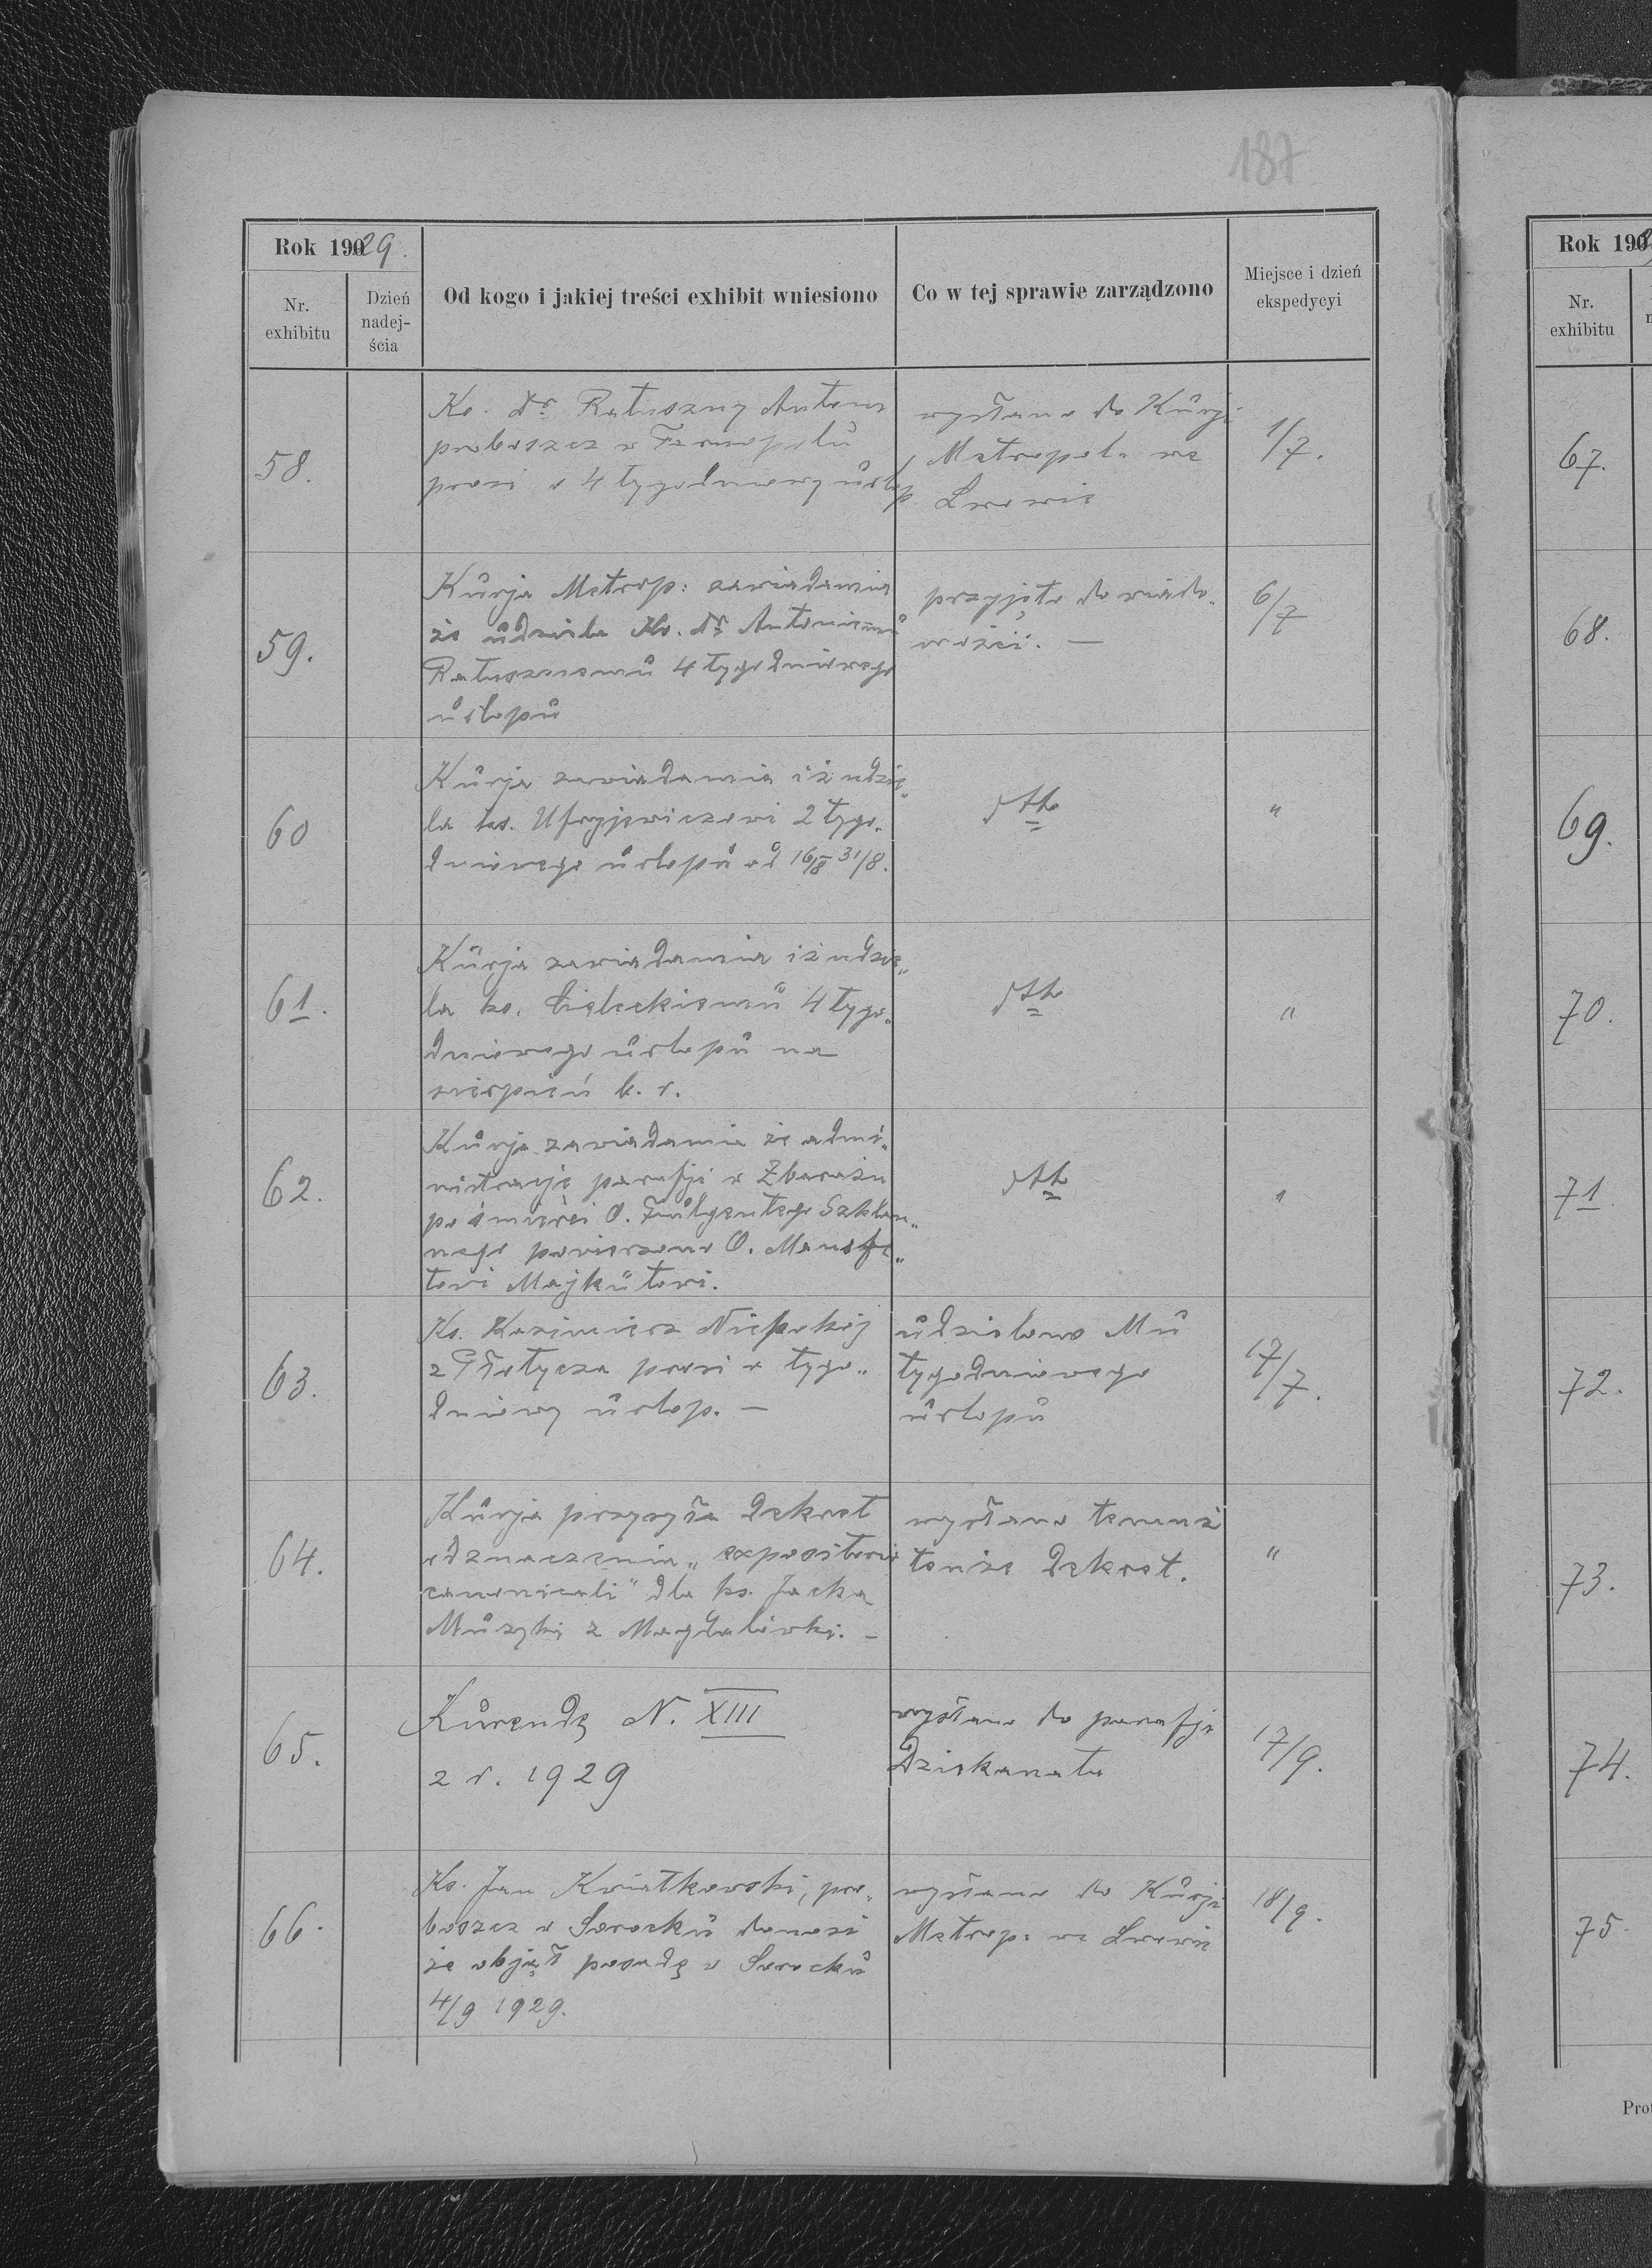 187
Rok 1929.
Nr. exhibitu
Dzień nadejścia
Od kogo i jakiej treści exhibit wniesiono
Co w tej sprawie zarządzono
Miejsce i dzień ekspedycyi
58.
Ks. dr. Ratuszny Antoni
proboszcz w Tarnopolu
prosi o 4 tygodniowy urlop.
wysłano do Kurji
Metropol. we
Lwowie
1/7.
59.
Kurja Metrop: zawiadamia
że udziela Ks. dr. Antoniemu
Ratusznemu 4 tygodniowego
urlopu
przyjęto do wiado-
mości. —
6/7
60
Kurja zawiadamia iż udzie-
la ks. Ufryjewiczowi 2 tygo-
dniowego urlopu od 16/8 31/8.
dtto
"
61.
Kurja zawiadamia iż udzie-
la ks. Cieleckiemu 4 tygo-
dniowego urlopu na
sierpień b. r.
dtto
"
62.
Kurja zawiadamia że admi-
nistrację parafji w Zbarażu
po śmierci O. Fulgentego
nego powierzono O.
towi Majkutowi.
dtto
"
63.
Ks. Kazimierz Niepokój
z Płotycza prosi o tygo-
dniowy urlop. —
udzielono Mu
tygodniowego
urlopu
17/7.
64.
Kurja przysyła dekret
odznaczenia „expositorio
canonicali" dla ks. Jacka
Muzyki z Magdalówki. —
wysłano temuż
tenże dekret.
"
65.
Kurendę N. XIII
z r. 1929
wysłano do parafji
Dziekanatu
17/9.
66.
Ks. Jan Kwiatkowski, pro-
boszcz w Sorocku donosi
że objął posadę w Sorocku
4/9 1929.
wysłano do Kurji
Metrop: we Lwowie
18/9.
Rok 190
Nr. exhibitu
67.
68.
69.
70.
71.
72.
73.
74.
75.